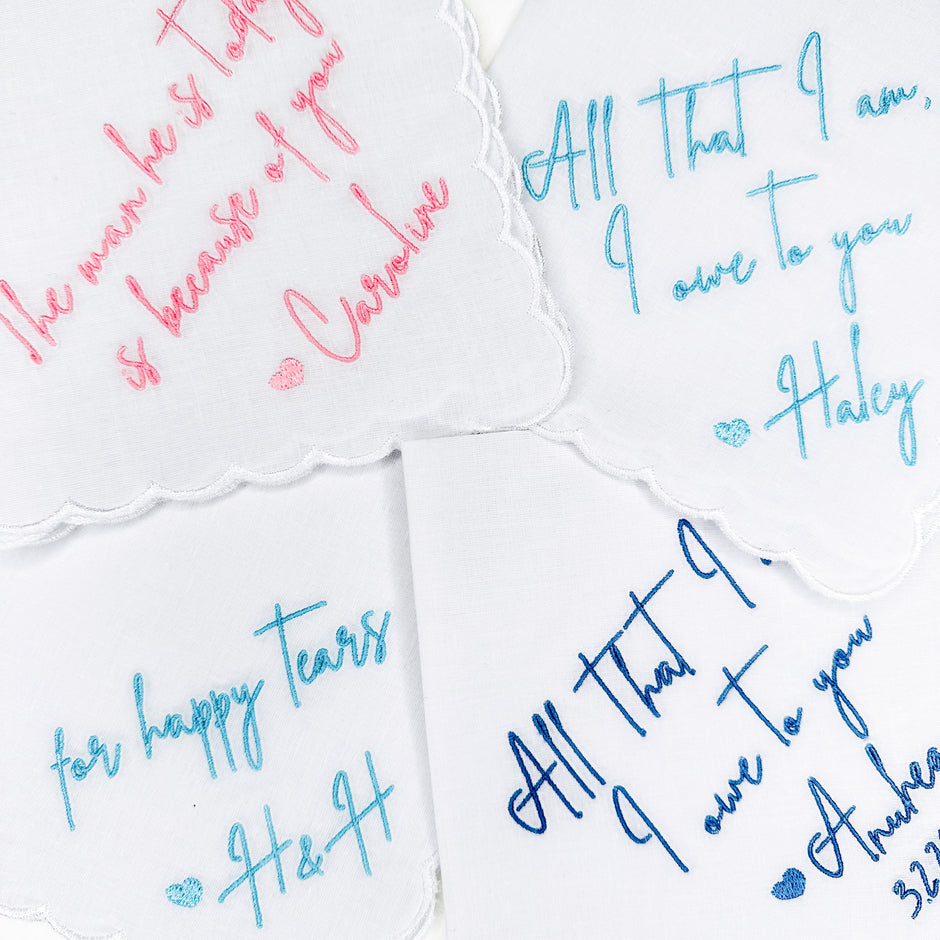 The man he is
is because of you
Caroline
All That I am,
I owe to you
Haley
for happy Tears
H & H
All That I
I owe to you